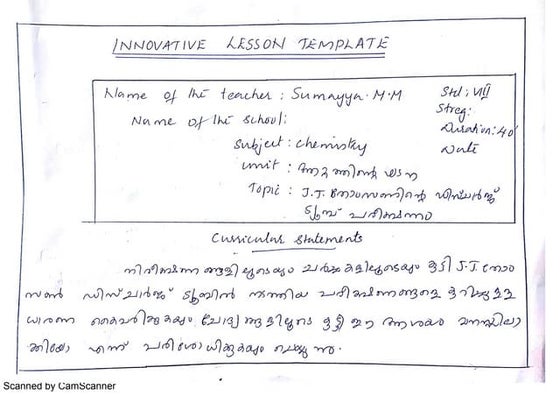 INNOVATIVE LESSON TEMPLATE
Name of the teacher : Sumayya.M.M
Std : VIII
Name of the school:
Streg:
Subject : chemistry
Duration: 40'
Unit : ആറ്റത്തിന്റെ ഘടന
Date
Topic : J.T. തോംസണിന്റെ ഡിസ്ചാർജ്
ട്യൂബ് പരീക്ഷണം
Curricular statements
നിരീക്ഷണങ്ങളിലൂടെയും ചർച്ചകളിലൂടെയും കുട്ടി J.J. തോം
സൺ ഡിസ്ചാർജ് ട്യൂബിൽ നടത്തിയ പരീക്ഷണങ്ങളെ കുറിച്ചുള്ള
ധാരണ കൈവരിക്കുകയും ചോദ്യങ്ങളിലൂടെ കുട്ടി ഈ ആശയം മനസ്സിലാ
ക്കിയോ എന്ന് പരിശോധിക്കുകയും ചെയ്യുന്നു.
Scanned by CamScanner